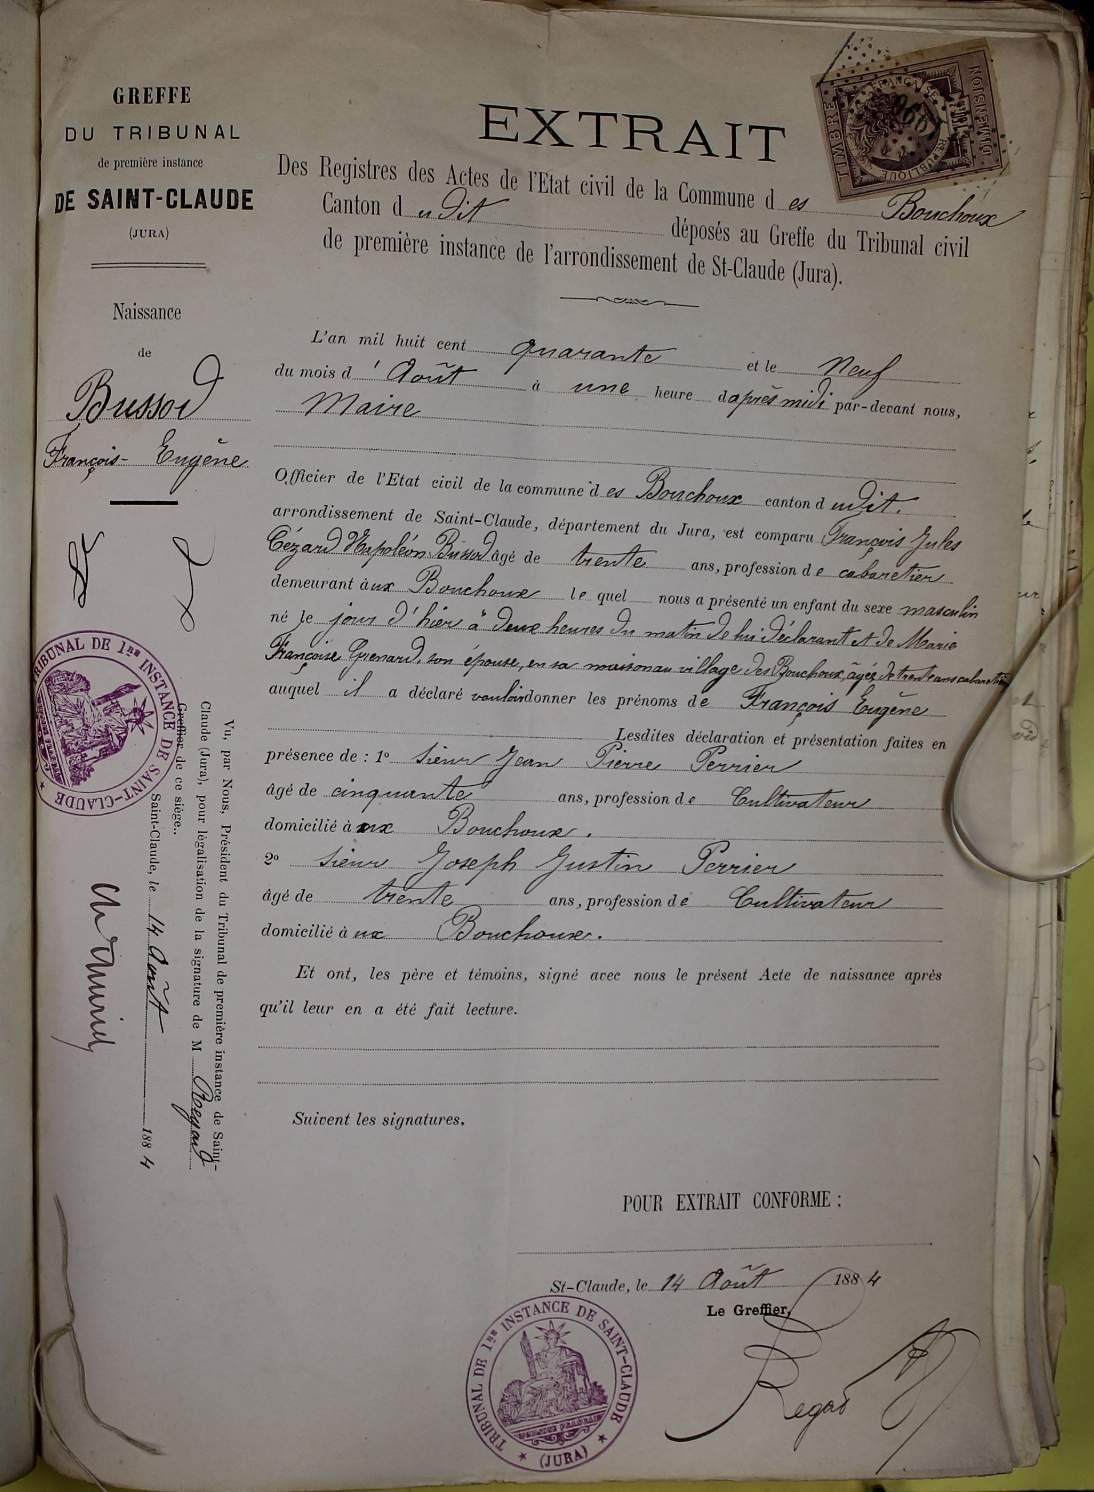 GREFFE
DU TRIBUNAL
de première instance
DE SAINT-CLAUDE
(JURA)
Naissance
de
Bussod
François-Eugène
EXTRAIT
Des Registres des Actes de l'Etat civil de la Commune des Bouchoux
Canton dudit déposés au Greffe du Tribunal civil
de première instance de l'arrondissement de St-Claude (Jura).
L'an mil huit cent quarante et le neuf
du mois d'Août à une heure daprès midi par-devant nous,
Maire
Officier de l'Etat civil de la commune des Bouchoux canton dudit.
arrondissement de Saint-Claude, département du Jura, est comparu François Jules
Cézard Napoléon Bussod âgé de trente ans, profession de cabaretier
demeurant aux Bouchoux lequel nous a présenté un enfant du sexe masculin
né le jour d'hier à deux heures du matin de lui déclarant et de Marie
Françoise Grenard, son épouse, en sa maison au village des Bouchoux, âgée de trente ans
auquel il a déclaré vouloir donner les prénoms de François Eugène
Lesdites déclaration et présentation faites en
présence de : 1º sieur Jean Pierre Perrier
âgé de cinquante ans, profession de Cultivateur
domicilié aux Bouchoux.
2º sieur Joseph Justin Perrier
âgé de trente ans, profession de Cultivateur
domicilié aux Bouchoux.
Et ont, les père et témoins, signé avec nous le présent Acte de naissance après
qu'il leur en a été fait lecture.
Suivent les signatures.
POUR EXTRAIT CONFORME :
St-Claude, le 14 Août 1884
Le Greffier,
Regad
TRIBUNAL DE 1RE INSTANCE DE SAINT-CLAUDE
(JURA)
Vu, par Nous, Président du Tribunal de première instance de Saint-
Claude (Jura), pour légalisation de la signature de M Regad
Greffier de ce siège..
Saint-Claude, le 14 Août 1884
TRIBUNAL DE 1RE INSTANCE DE SAINT-CLAUDE
TIMBRE
DIMENSION
REPUBLIQUE FRANÇAISE